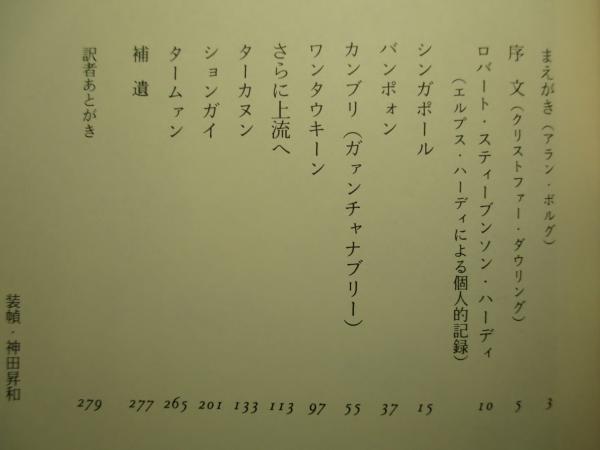 まえがき（アラン・ボルグ） 3
序文（クリストファー・ダウリング） 5
ロバート・スティーブンソン・ハーディ 10
（エルプス・ハーディによる個人的記録）
シンガポール 15
バンポォン 37
カンブリ（ガァンチャナブリー） 55
ワンタウキーン 97
さらに上流へ 113
ターカヌン 133
ションガイ 201
タームァン 265
補遺 277
訳者あとがき 279
装幀・神田昇和